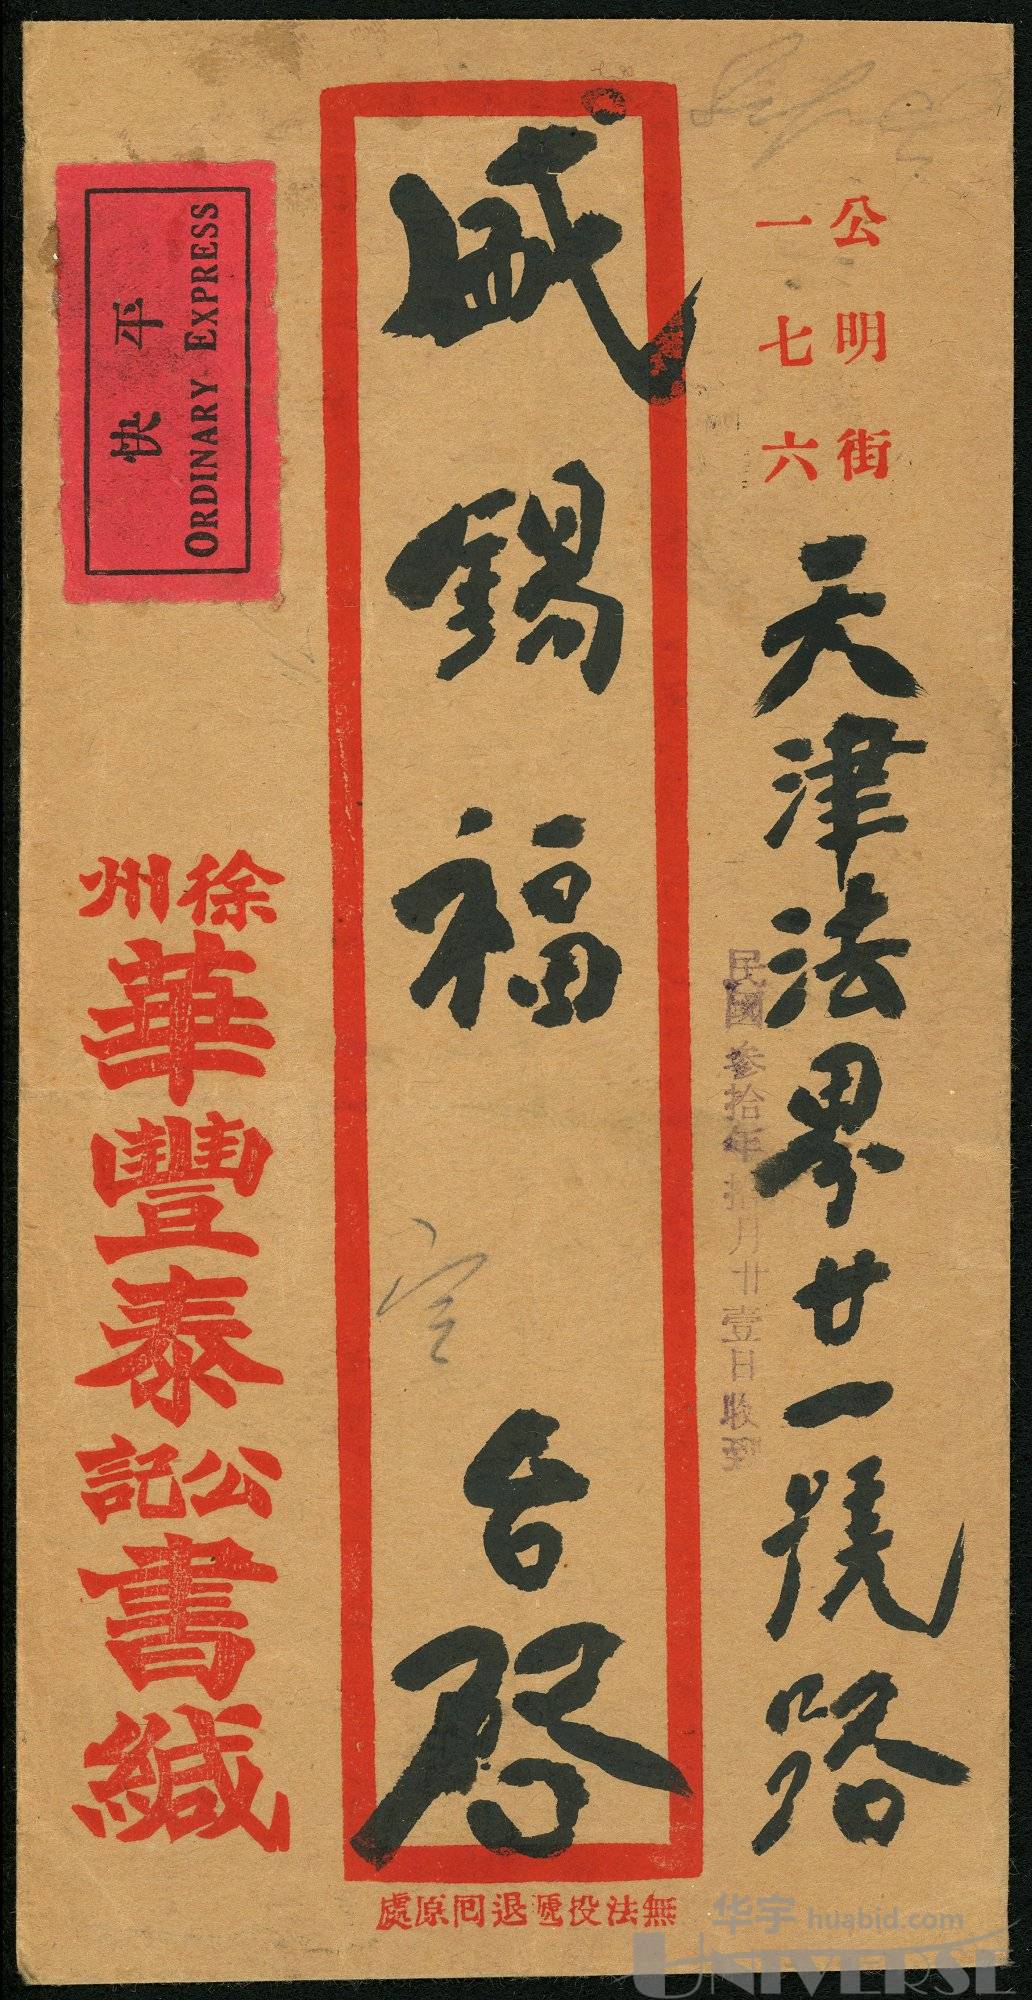 公明街
一七六
天津法界廿一號路
民國叁拾年拾月廿壹日收到
盛錫福
台啓
無法投遞退囘原處
平快
ORDINARY EXPRESS
徐州
華豐泰
公記
書緘
华宇 huabid.com
UNIVERSE